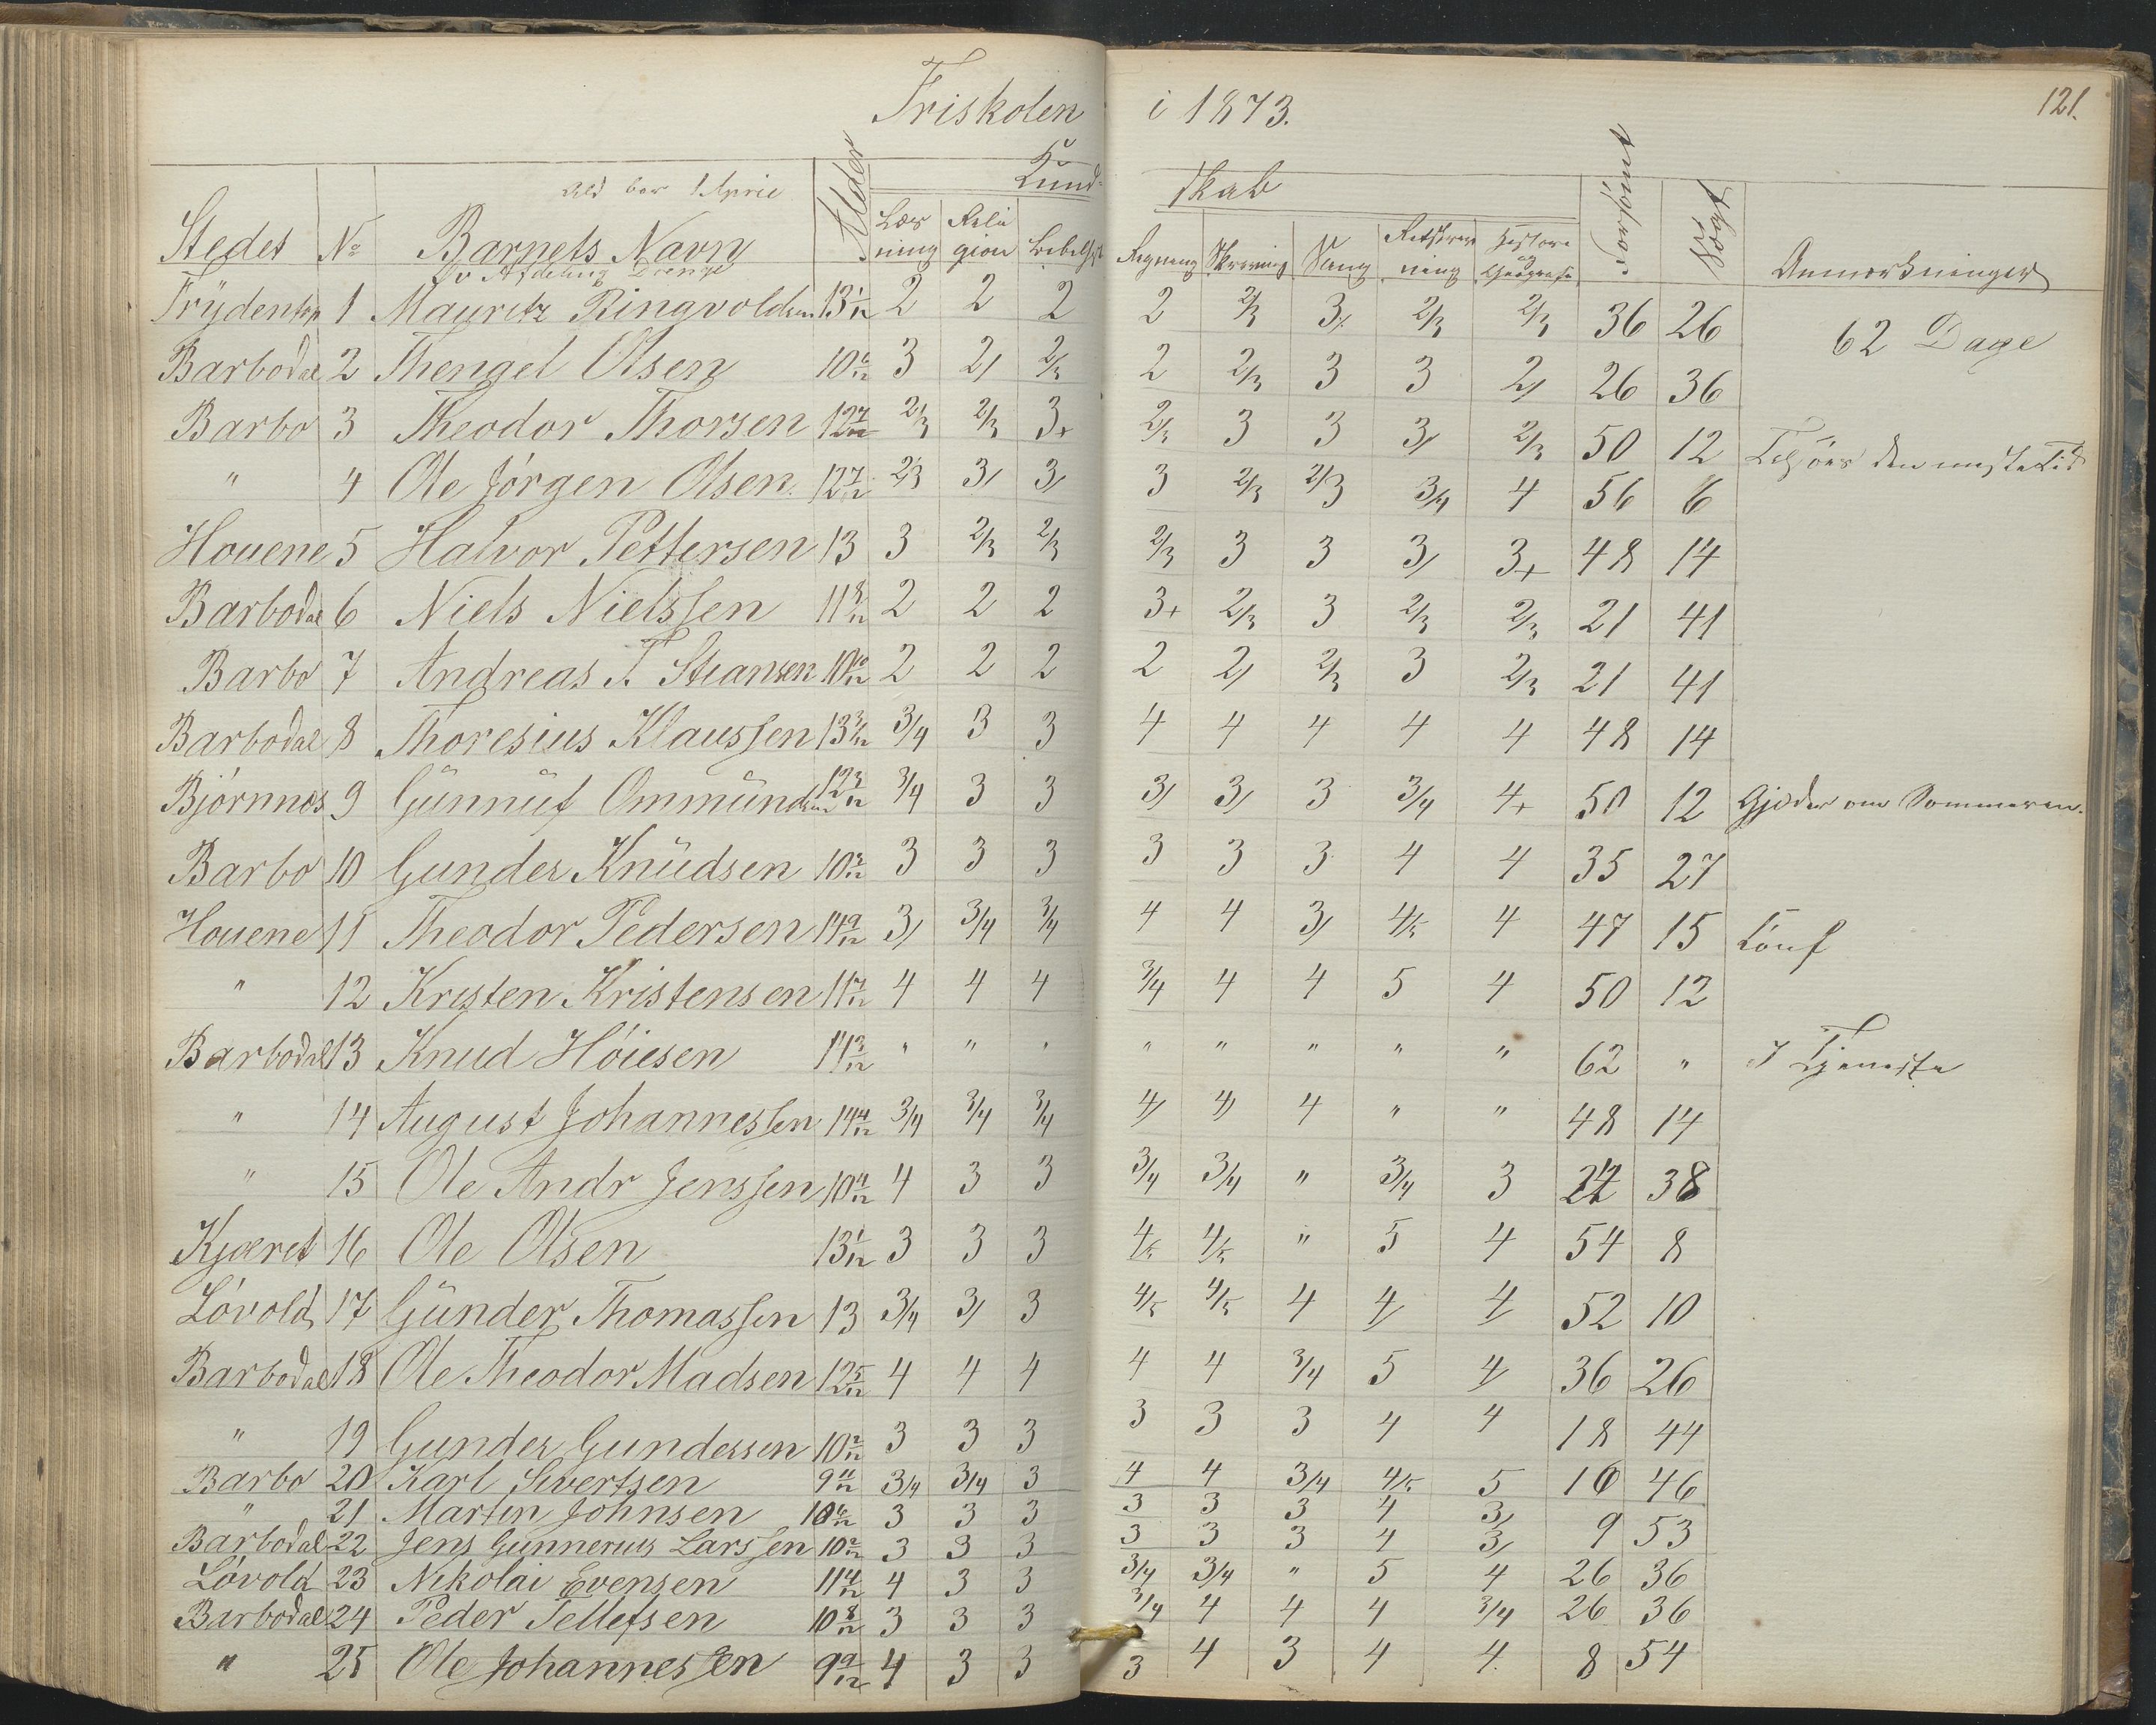 Friskolen i 1873.
121.
Kund- skab
Stedet № Barnets Navn Alder Læsning Religion Bibelhist Regning Skrivning Sang Retskrivning Historie og Geografi Forsömt Sögt Anmærkninger
Afdeling Drenge
1 Mauritz Ringvoldsen 13 1/12 2 2 2 2 2/3 3/ 2/3 2/3 36 26 62 Dage
Barbodal 2 Thengel Olsen 10 6/12 3 2/ 2/3 2 2/3 3 3 2/ 26 36
Barbo 3 Theodor Thorsen 12 7/12 2/3 2/3 3+ 2/3 3 3 3/ 2/3 50 12
" 4 Ole Jörgen Olsen 12 7/12 2/3 3/ 3/ 3 2/3 2/3 3/4 4 56 6
Houene 5 Halvor Pettersen 13 3 2/3 2/3 2/3 3 3 3/ 3+ 48 14
Barbodal 6 Niels Nielssen 11 8/12 2 2 2 3+ 2/3 3 2/3 2/3 21 41
Barbo 7 Andreas T. Stiansen 10 10/12 2 2 2 2 2/ 2/3 3 2/3 21 41
Barbodal 8 Thoresius Klaussen 13 3/12 3/4 3 3 4 4 4 4 4 48 14
Björnnes 9 Gunnuf Ommundsen 12 3/12 3/4 3 3 3/ 3/ 3 3/4 4+ 50 12 Gjæder om Sommeren.
Barbo 10 Gunder Knudsen 10 2/12 3 3 3 3 3 3 4 4 35 27
Houene 11 Theodor Pedersen 14 9/12 3/ 3/4 3/4 4 4 3/ 4/5 4 47 15 Konf
" 12 Kristen Kristensen 11 7/12 4 4 4 3/4 4 4 5 4 50 12
Barbodal 13 Knud Höiesen 14 3/12 " " " " " " " " 62 " I Tjeneste
" 14 August Johannessen 14 4/12 3/4 3/4 3/4 4/ 4/ 4 " " 48 14
" 15 Ole Andr Jenssen 10 4/12 4 3 3 3/4 3/4 " 3/4 3 24 38
Kjæret 16 Ole Olsen 13 1/12 3 3 3 4/5 4/5 " 5 4 54 8
Lövold 17 Gunder Thomassen 13 3/4 3/ 3 4/5 4/5 4 4/ 4/ 52 10
Barbodal 18 Ole Theodor Madsen 12 5/12 4 4 4 4 4 3/4 5 4/ 36 26
" 19 Gunder Gundersen 10 2/12 3 3 3 3 3 3 4 4 18 44
Barbo 20 Karl Sivertsen 9 11/12 3/4 3/4 3 4 4 3/4 4/5 5 16 46
" 21 Martin Johnsen 10 6/12 3 3 3 3 3 3 4 3/ 9 53
Barbodal 22 Jens Gunnerius Larssen 10 2/12 3 3 3 3 3 3 4 3/
Lövold 23 Nikolai Evensen 11 4/12 4 3 3 3/4 3/4 " 5 4 26 36
Barbodal 24 Peder Tellefsen 10 8/12 3 3 3 3/4 4 4 4 3/4 26 36
" 25 Ole Johannessen 9 9/12 4 3 3 3 4 3 4 4 8 54